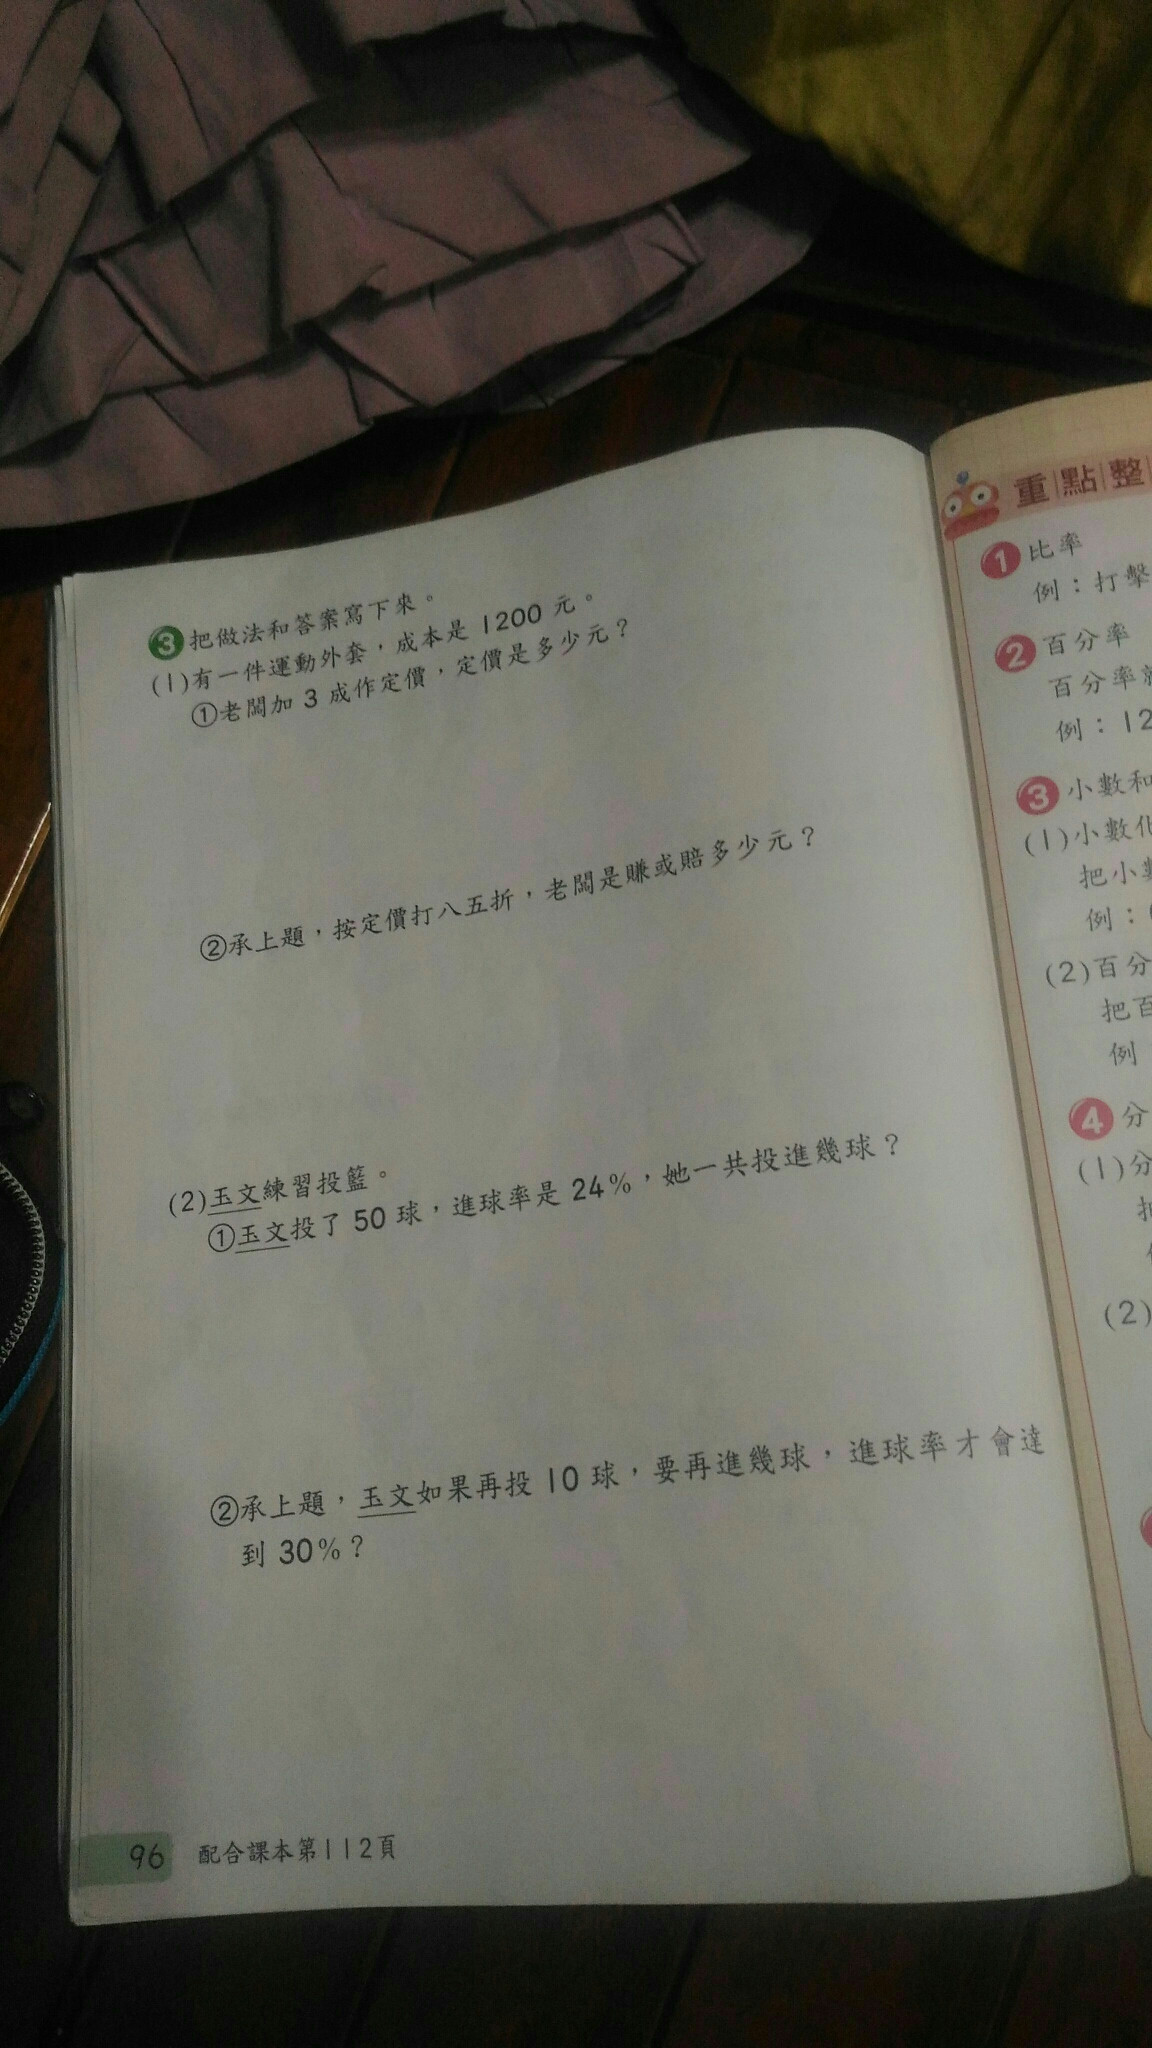 3 把做法和答案寫下來。
(1)有一件運動外套，成本是1200元。
①老闆加3成作定價，定價是多少元？
②承上題，按定價打八五折，老闆是賺或賠多少元？
(2)玉文練習投籃。
①玉文投了50球，進球率是24%，她一共投進幾球？
②承上題，玉文如果再投10球，要再進幾球，進球率才會達
到30%？
96 配合課本第112頁
重點整
1 比率
例：打擊
2 百分率
百分率就
例：12
3 小數和
(1)小數化
把小數
例：
(2)百分
把百
例
4 分
(1)分
(2)